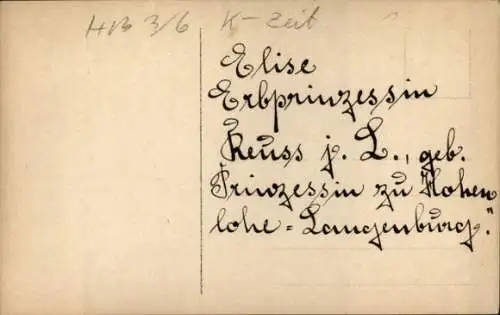 HB 3/6 K-Zeit
Elise
Erbprinzessin
Reuss j. L., geb.
Prinzessin zu Hohen
lohe=Langenburg."